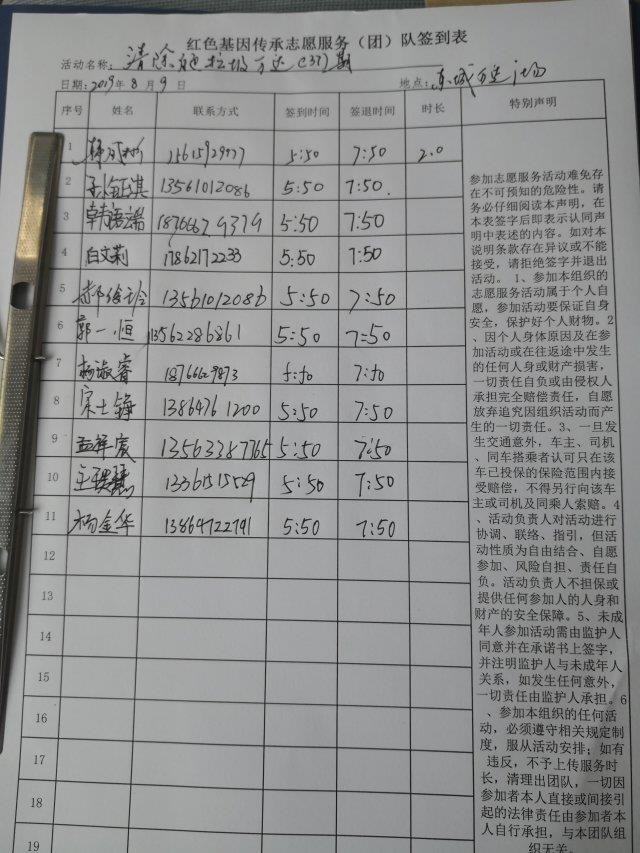 红色基因传承志愿服务（团）队签到表
活动名称：清除 垃圾 万达（37）期
日期：2019年8月9日 地点：东城万达广场
序号 姓名 联系方式 签到时间 签退时间 时长 特别声明
1 5:50 7:50 2.0
2 13561012086 5:50 7:50.
3 韩语 5:50 7:50
4 白文莉 17862172233 5:50 7:50
5 13561012086 5:50 7:50
6 郭一恒 13562286861 5:50 7:50
7 杨淑睿 18766629873 5:50 7:50
8 宋士 13864761200 5:50 7:50
9 孟祥宸 13563387765 5:50 7:50
10 王 13361515529 5:50 7:50
11 杨金华 13864722791 5:50 7:50
12
13
14
15
16
17
18
19
参加志愿服务活动难免存
在不可预知的危险性。请
务必仔细阅读本声明，在
本表签字后即表示认同声
明中表述的内容。如对本
说明条款存在异议或不能
接受，请拒绝签字并退出
活动。 1、参加本组织的
志愿服务活动属于个人自
愿，参加活动要保证自身
安全，保护好个人财物。2
、因个人身体原因及在参
加活动或在往返途中发生
的任何人身或财产损害，
一切责任自负或由侵权人
承担完全赔偿责任，自愿
放弃追究因组织活动而产
生的一切责任。3、一旦发
生交通意外，车主、司机
、同车搭乘者认可只在该
车已投保的保险范围内接
受赔偿，不得另行向该车
主或司机及同乘人索赔。4
、活动负责人对活动进行
协调、联络、指引，但活
动性质为自由结合、自愿
参加、风险自担、责任自
负。活动负责人不担保或
提供任何参加人的人身和
财产的安全保障。5、未成
年人参加活动需由监护人
同意并在承诺书上签字，
并注明监护人与未成年人
关系，如发生任何意外，
一切责任由监护人承担。6
、参加本组织的任何活
动，必须遵守相关规定制
度，服从活动安排；如有
违反，不予上传服务时
长，清理出团队，一切因
参加者本人直接或间接引
起的法律责任由参加者本
人自行承担，与本团队组
织无关。